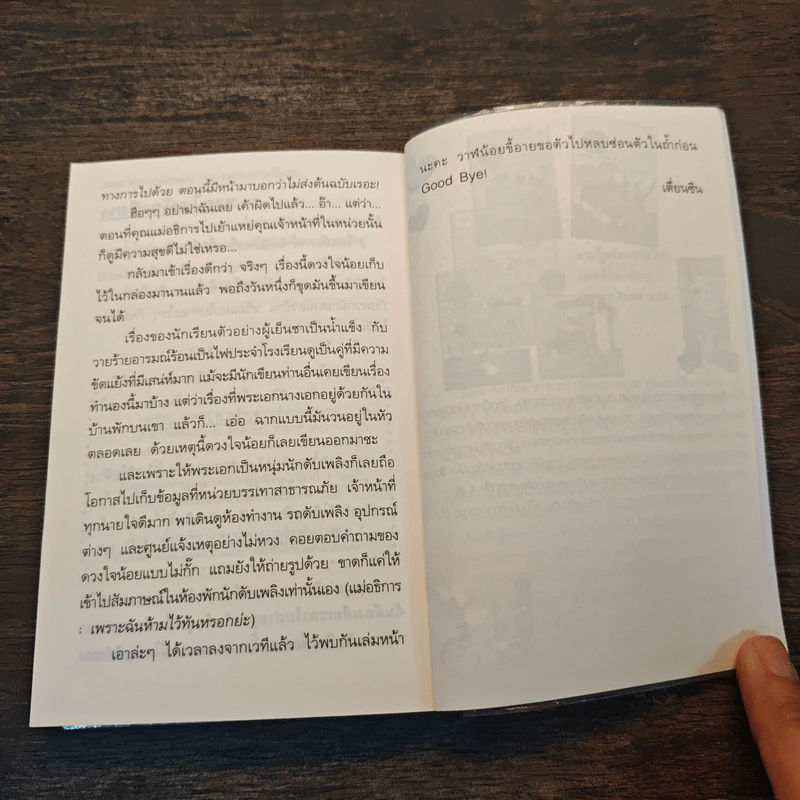 ทางการไปด้วย ตอนนี้มีหน้ามาบอกว่าไม่ส่งต้นฉบับเรอะ!
ฮือๆๆ อย่าฆ่าฉันเลย เค้าผิดไปแล้ว... อ๊า... แต่ว่า...
ตอนที่คุณแม่อธิการไปเย้าแหย่คุณเจ้าหน้าที่ในหน่วยนั้น
ก็ดูมีความสุขดีไม่ใช่เหรอ...
กลับมาเข้าเรื่องดีกว่า จริงๆ เรื่องนี้ดวงใจน้อยเก็บ
ไว้ในกล่องมานานแล้ว พอถึงวันหนึ่งก็ขุดมันขึ้นมาเขียน
จนได้
เรื่องของนักเรียนตัวอย่างผู้เย็นชาเป็นน้ำแข็ง กับ
วายร้ายอารมณ์ร้อนเป็นไฟประจำโรงเรียนดูเป็นคู่ที่มีความ
ขัดแย้งที่มีเสน่ห์มาก แม้จะมีนักเขียนท่านอื่นเคยเขียนเรื่อง
ทำนองนี้มาบ้าง แต่ว่าเรื่องที่พระเอกนางเอกอยู่ด้วยกันใน
บ้านพักบนเขา แล้วก็... เอ่อ ฉากแบบนี้มันวนอยู่ในหัว
ตลอดเลย ด้วยเหตุนี้ดวงใจน้อยก็เลยเขียนออกมาซะ
และเพราะให้พระเอกเป็นหนุ่มนักดับเพลิงก็เลยถือ
โอกาสไปเก็บข้อมูลที่หน่วยบรรเทาสาธารณภัย เจ้าหน้าที่
ทุกนายใจดีมาก พาเดินดูห้องทำงาน รถดับเพลิง อุปกรณ์
ต่างๆ และศูนย์แจ้งเหตุอย่างไม่หวง คอยตอบคำถามของ
ดวงใจน้อยแบบไม่กั๊ก แถมยังให้ถ่ายรูปด้วย ขาดก็แค่ให้
เข้าไปสัมภาษณ์ในห้องพักนักดับเพลิงเท่านั้นเอง (แม่อธิการ
: เพราะฉันห้ามไว้ทันหรอกย่ะ)
เอาล่ะๆ ได้เวลาลงจากเวทีแล้ว ไว้พบกันเล่มหน้า
นะคะ วาฬน้อยขี้อายขอตัวไปหลบซ่อนตัวในถ้ำก่อน
Good Bye!
เตี่ยนซิน